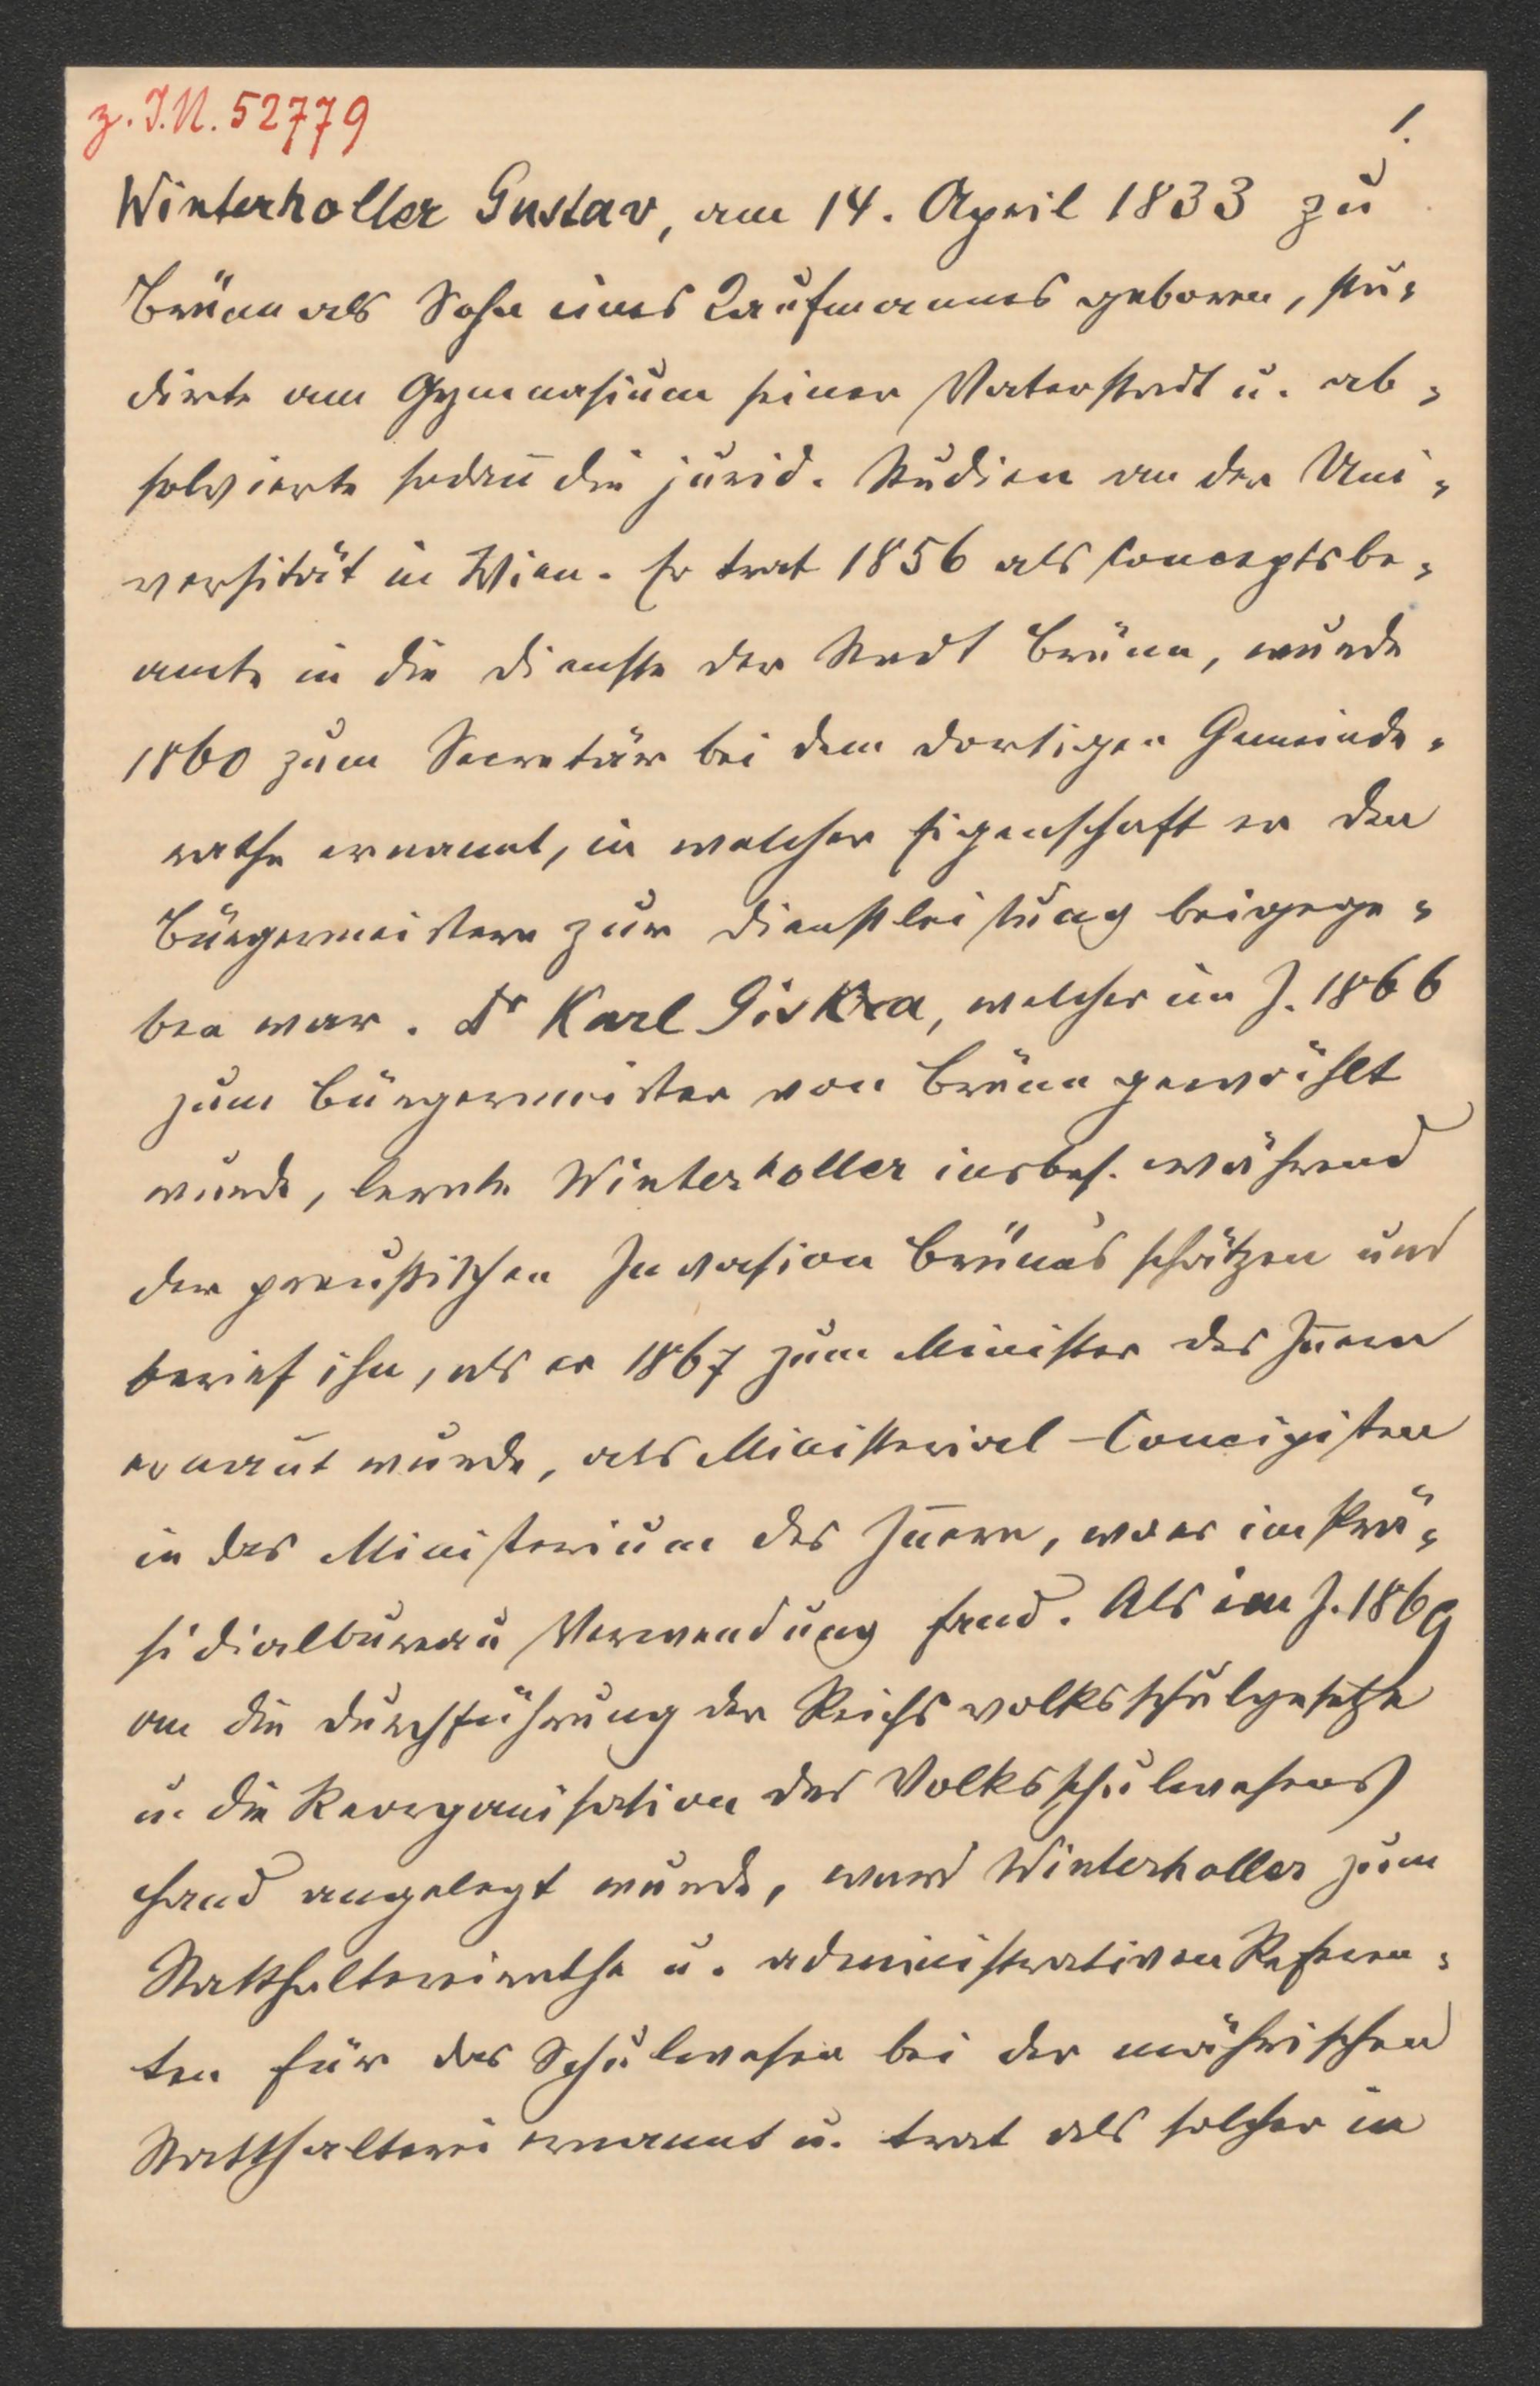 z. I.N. 52779
1.
Winterholler Gustav, am 14. April 1833 zu
Brünn als Sohn eines Kaufmannes geboren, stu-
dirte am Gymnasium seiner Vaterstadt u. ab-
solvierte sodan̄ die jurid. Studien an der Uni-
versität in Wien. Er trat 1856 als Conceptsbe-
amte in die Dienste der Stadt Brünn, wurde
1860 zum Secretär bei dem dortigen Gemeinde-
rathe ernannt, in welcher Eigenschaft er den
Bürgermeistern zur Dienstleistung beigege-
ben war. Dr Karl Giskra, welcher im J. 1866
zum Bürgermeister von Brünn gewählt
wurde, lernte Winterholler insbes. während
der preußischen Invasion Brünn's schätzen und
berief ihn, als er 1867 zum Minister des In̄ern
ernan̄t wurde, als Ministerial-Concipisten
in das Ministerium des In̄ern, wo er im Prä-
sidialbureau Verwendung fand. Als im J. 1869
an die Durchführung der Reichsvolksschulgesetze
u. die Reorganisation des Volksschulwesens
Hand angelegt wurde, ward Winterholler zum
Statthaltereirathe u. administrativen Referen-
ten für das Schulwesen bei der mährischen
Statthalterei ernannt u. trat als solcher in